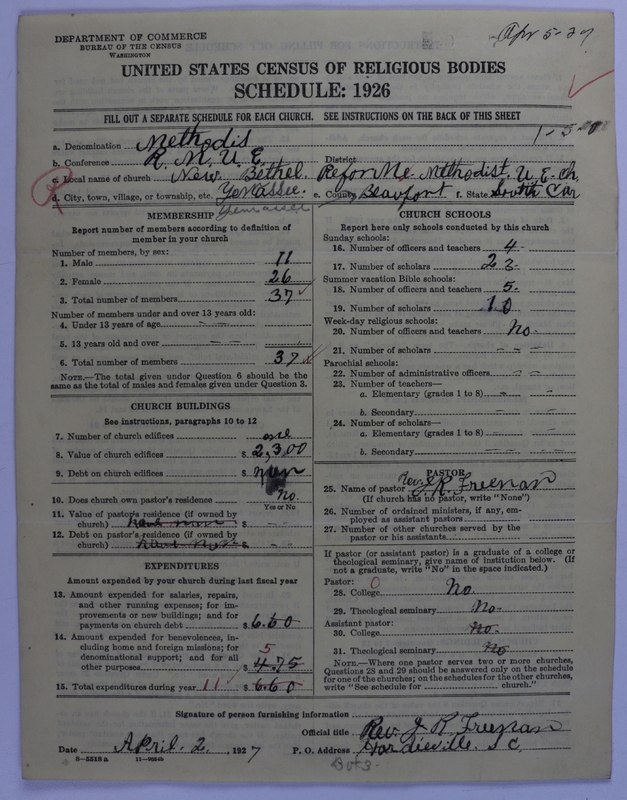 DEPARTMENT OF COMMERCE
BUREAU OF THE CENSUS
WASHINGTON
Apr 5-27
UNITED STATES CENSUS OF RELIGIOUS BODIES
SCHEDULE: 1926
FILL OUT A SEPARATE SCHEDULE FOR EACH CHURCH. SEE INSTRUCTIONS ON THE BACK OF THIS SHEET
a. Denomination Methodis
b. Conference R. M. U. E. District
c. Local name of church New Bethel Reform Me. Methodist. U. E. Ch
d. City, town, village, or township, etc. Yemassee. e. County Beaufort f. State South Car
Yemassee
MEMBERSHIP
Report number of members according to definition of member in your church
Number of members, by sex:
1. Male 11
2. Female 26
3. Total number of members 37
Number of members under and over 13 years old:
4. Under 13 years of age — —
5. 13 years old and over — —
6. Total number of members 37
NOTE.—The total given under Question 6 should be the same as the total of males and females given under Question 3.
CHURCH BUILDINGS
See instructions, paragraphs 10 to 12
7. Number of church edifices one
8. Value of church edifices $ 2,300
9. Debt on church edifices $ nun
10. Does church own pastor's residence No.
Yes or No
11. Value of pastor's residence (if owned by
church) $ — —
12. Debt on pastor's residence (if owned by
church) — —
EXPENDITURES
Amount expended by your church during last fiscal year
13. Amount expended for salaries, repairs,
and other running expenses; for im-
provements or new buildings; and for
payments on church debt $ 6.60
14. Amount expended for benevolences, in-
cluding home and foreign missions; for
denominational support; and for all
other purposes $ 4.75
5
15. Total expenditures during year 11 $ 6.60
CHURCH SCHOOLS
Report here only schools conducted by this church
Sunday schools:
16. Number of officers and teachers 4
17. Number of scholars 23
Summer vacation Bible schools:
18. Number of officers and teachers 5
19. Number of scholars 10
Week-day religious schools:
20. Number of officers and teachers No
21. Number of scholars — — —
Parochial schools:
22. Number of administrative officers — —
23. Number of teachers—
a. Elementary (grades 1 to 8) — —
b. Secondary — — —
24. Number of scholars—
a. Elementary (grades 1 to 8) — — —
b. Secondary — — —
PASTOR
25. Name of pastor Rev. J. R. Freeman
(If church has no pastor, write "None")
26. Number of ordained ministers, if any, em-
ployed as assistant pastors — — —
27. Number of other churches served by the
pastor or his assistants — — —
If pastor (or assistant pastor) is a graduate of a college or theological seminary, give name of institution below. (If not a graduate, write "No" in the space indicated.)
Pastor: 0
28. College No
29. Theological seminary No
Assistant pastor:
30. College No
31. Theological seminary No
NOTE.—Where one pastor serves two or more churches, Questions 28 and 29 should be answered only on the schedule for one of the churches; on the schedules for the other churches, write "See schedule for church."
Signature of person furnishing information
Official title Rev. J R Freeman
Date April. 2, 1927 P. O. Address Hardieville. S C.
Box 3.
8—5518 a 11—8054b